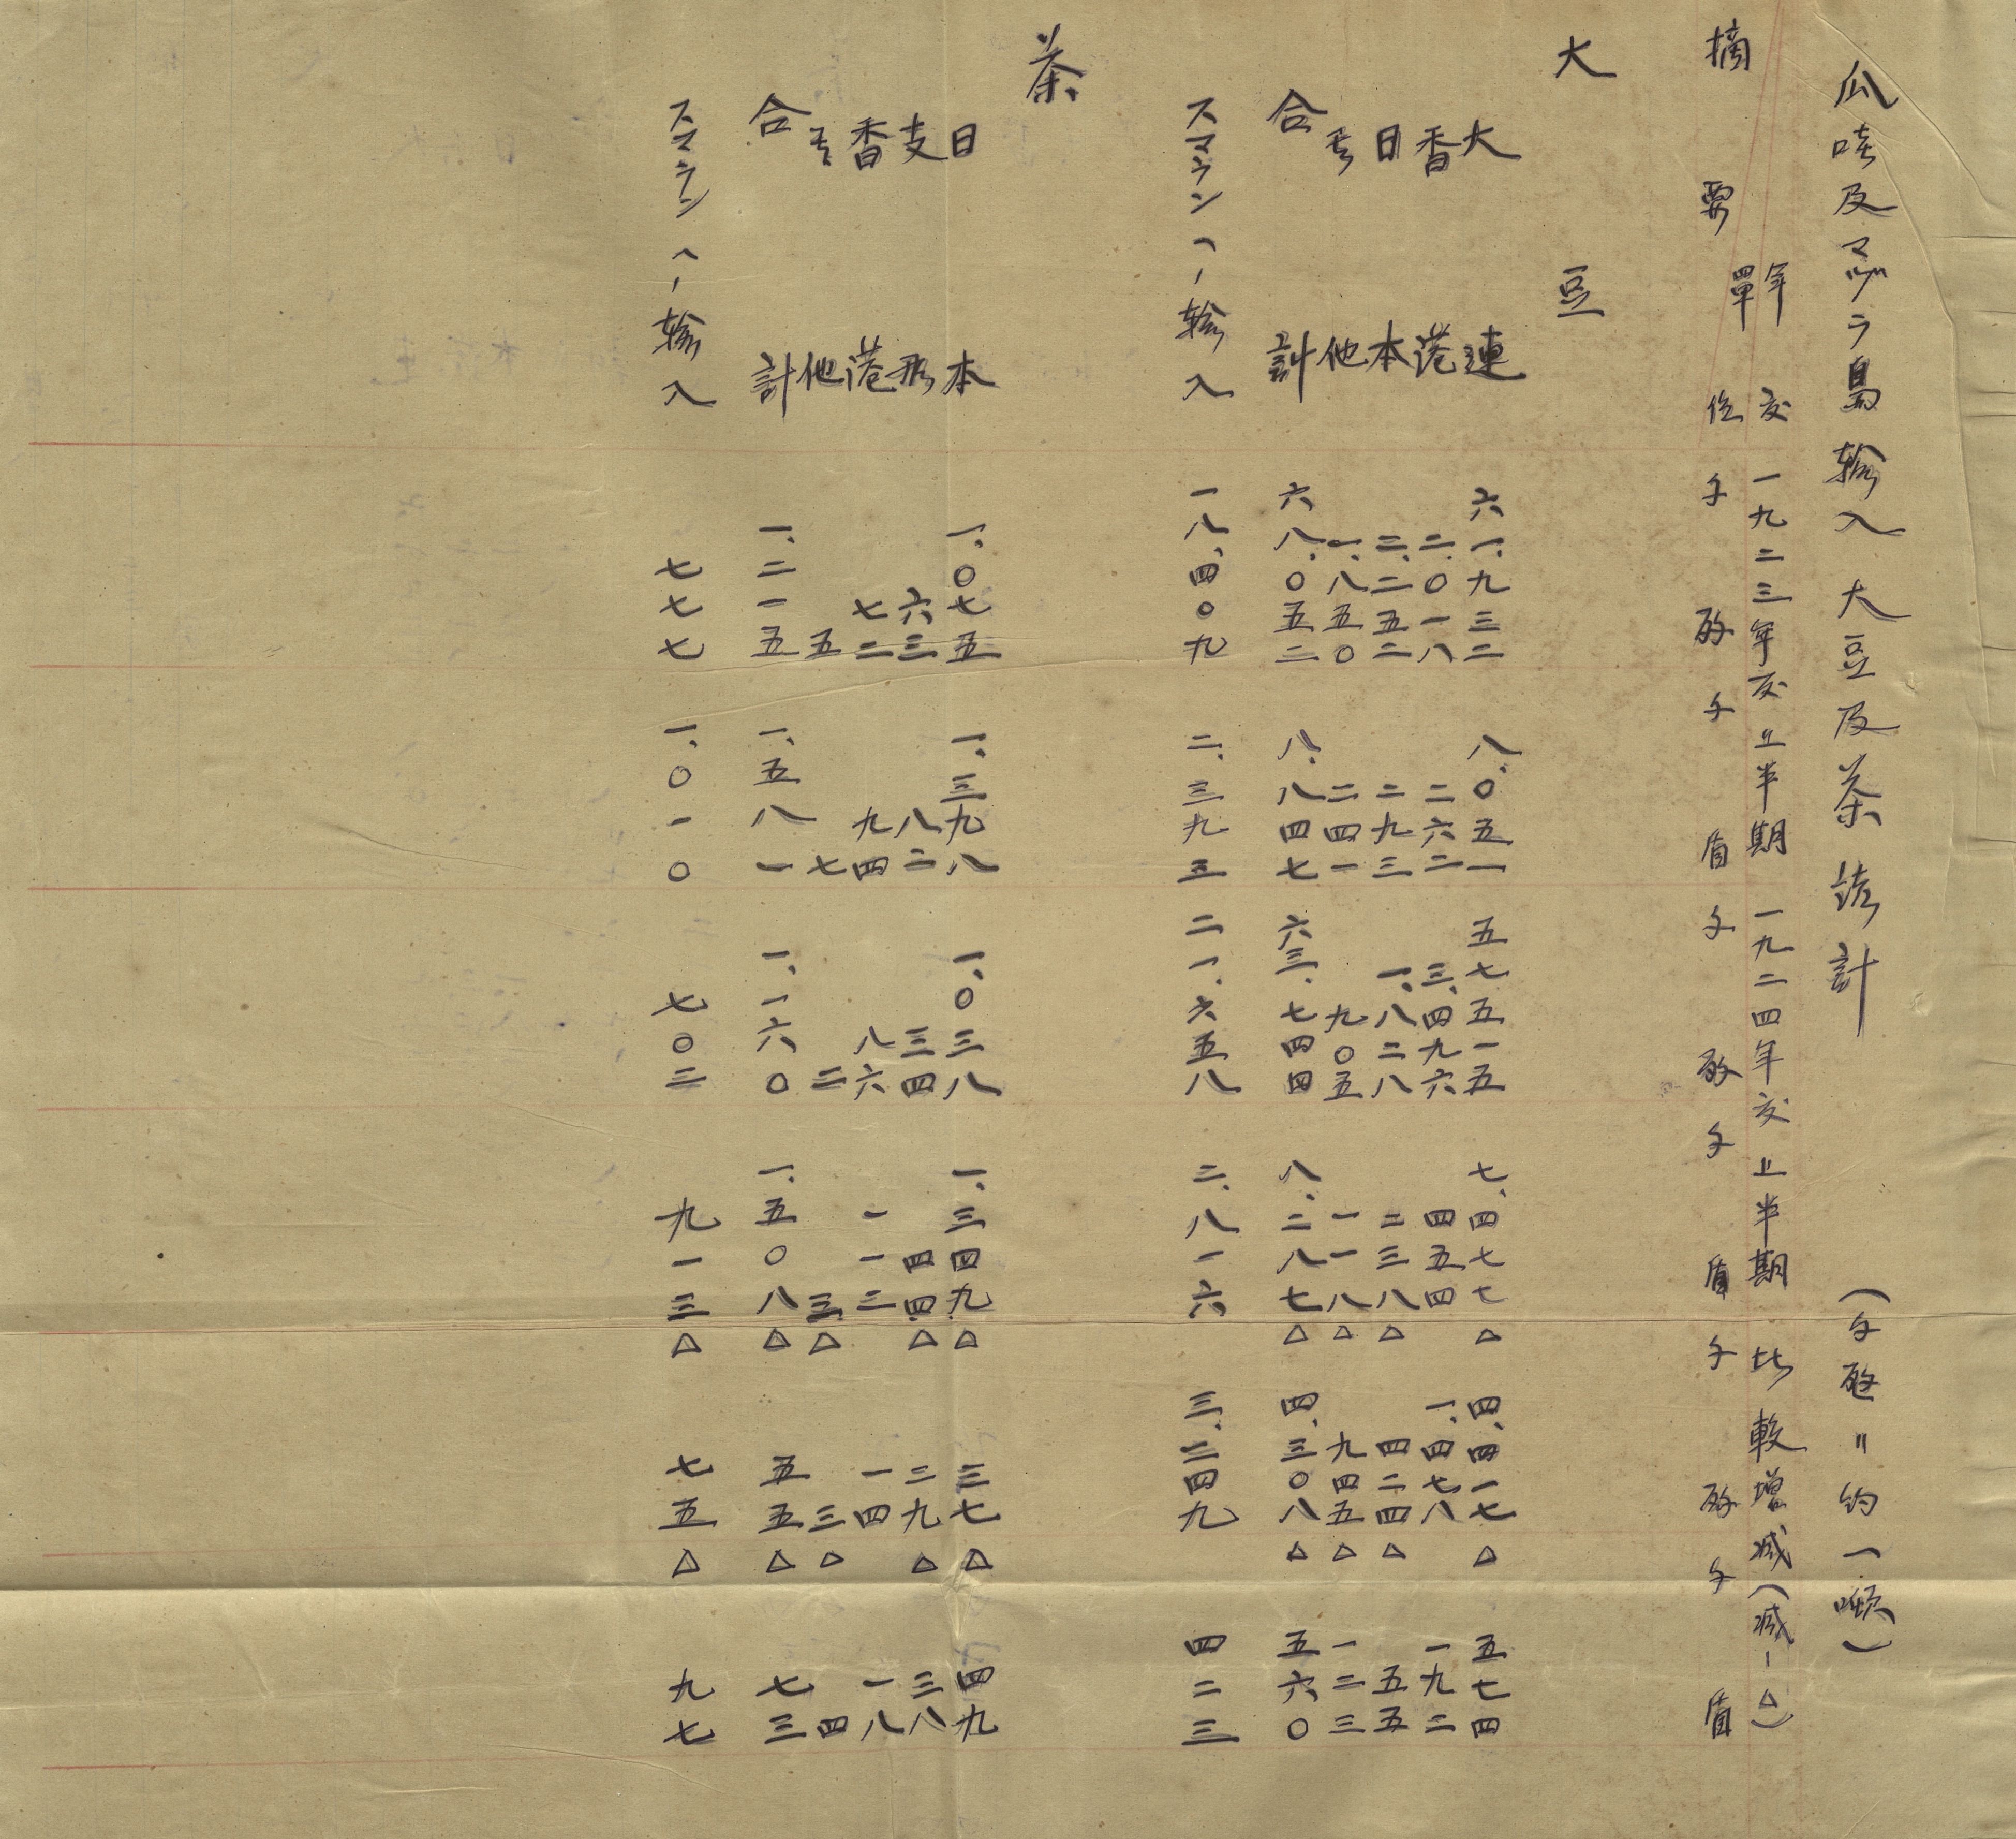 瓜哇及マヅラ島輸入大豆及茶統計 (千瓩=約一噸)
年度 一九二三年度上半期 一九二四年度上半期 比較増減(減ー△)
摘要 單位 千瓩 千盾 千瓩 千盾 千瓩 千盾
大豆
大連 六一、九三二 八、〇五一 五七、五一五 七、四七七 △四、四一七 △五七四
香港 二、〇一八 二六二 三、四九六 四五四 一、四七八 一九二
日本 二、二五二 二九三 一、八二八 二三八 △四二四 △五五
其他 一、八五〇 二四一 九〇五 一一八 △九四五 △一二三
合計 六八、〇五二 八、八四七 六三、七四四 八、二八七 △四、三〇八 △五六〇
スマラン ヘノ輸入 一八、四〇九 二、三九三 二一、六五八 二、八一六 三、二四九 四二三
茶
日本 一、〇七五 一、三九八 一、〇三八 一、三四九 △三七 △四九
支那 六三 八二 三四 四四 △二九 △三八
香港 七二 九四 八六 一一二 一四 一八
其他 五 七 二 三 △三 △四
合計 一、二一五 一、五八一 一、一六〇 一、五〇八 △五五 △七三
スマラン ヘノ輸入 七七七 一、〇一〇 七〇二 九一三 △七五 △九七